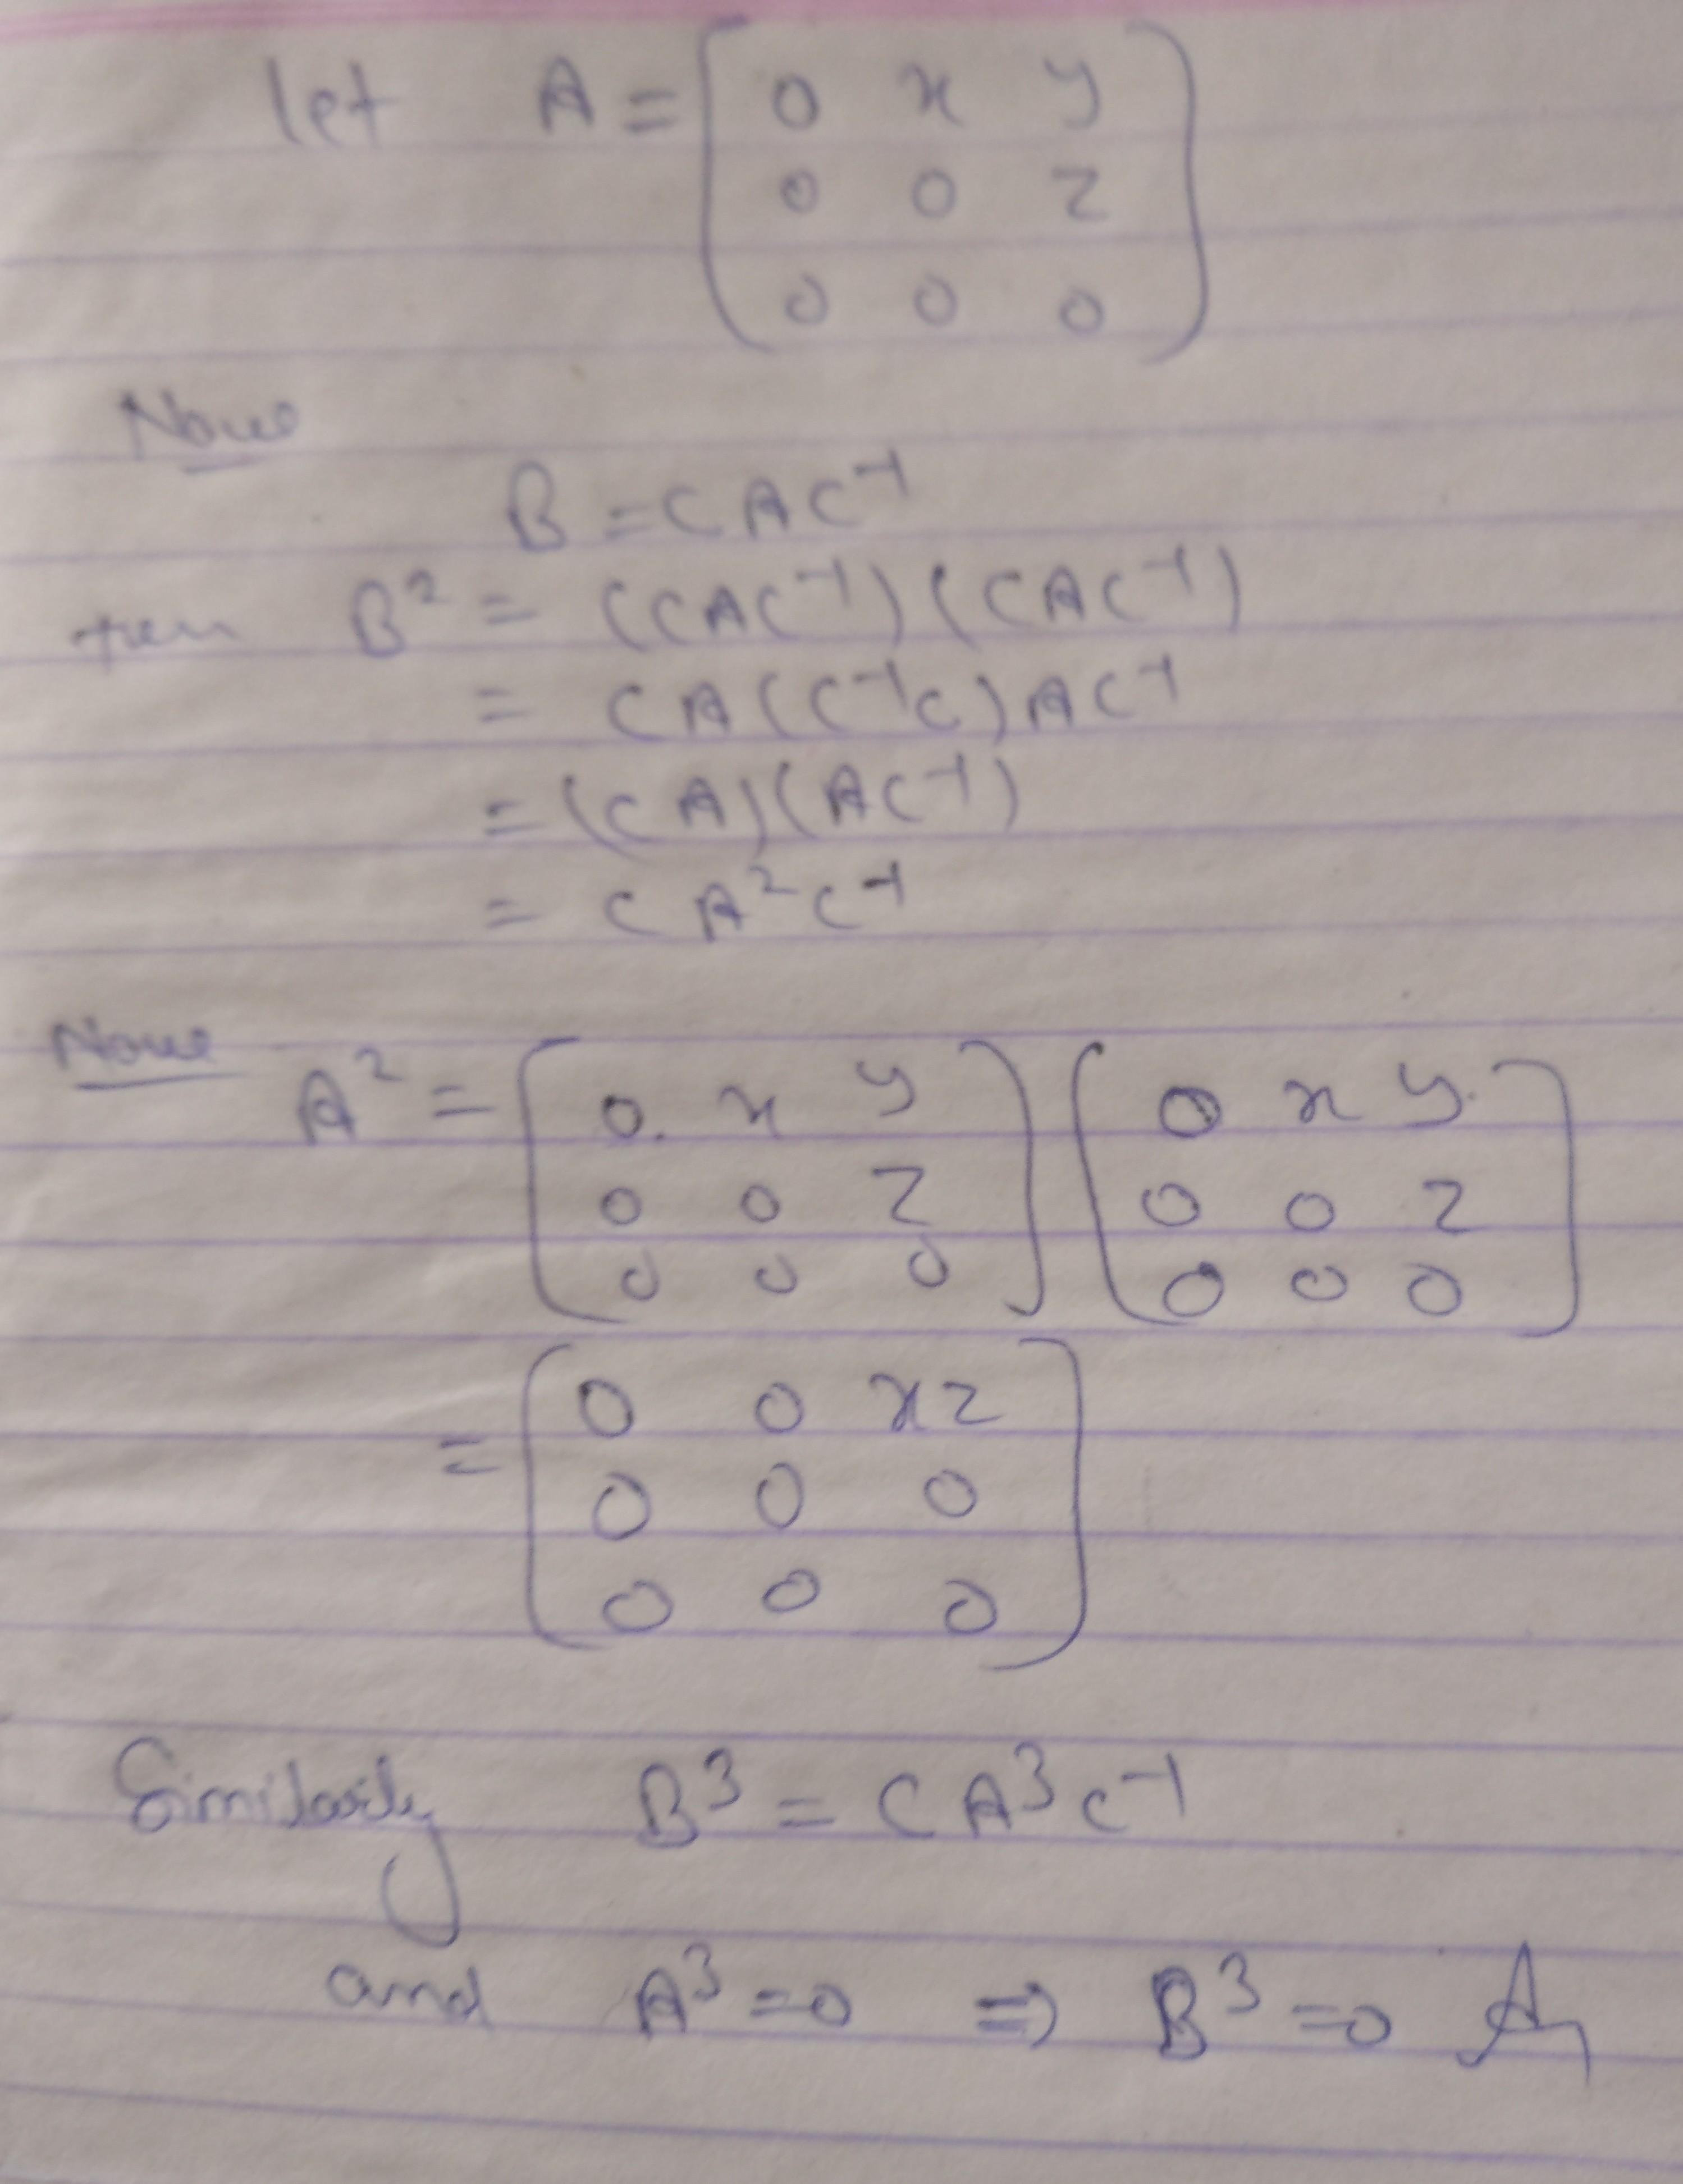 let A = [ 0 x y
0 0 z
0 0 0 ]
Now
B = CAC⁻¹
then B² = (CAC⁻¹)(CAC⁻¹)
= CA(C⁻¹C)AC⁻¹
= (CA)(AC⁻¹)
= CA²C⁻¹
Now A² = [ 0 x y ] [ 0 x y ]
0 0 z 0 0 z
0 0 0 0 0 0
= [ 0 0 xz
0 0 0
0 0 0 ]
Similarly B³ = CA³C⁻¹
and A³ = 0 ⇒ B³ = 0